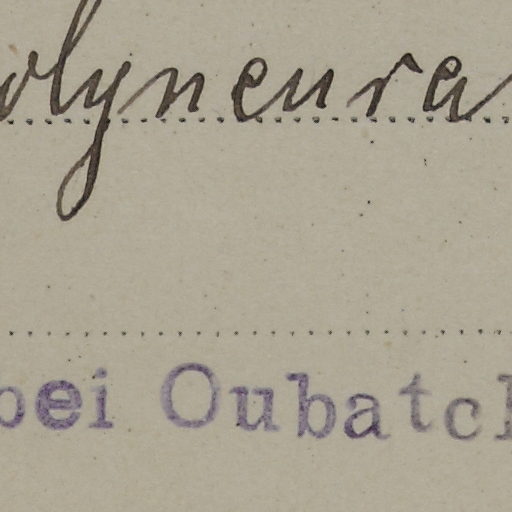 olyneura
bei Oubatch